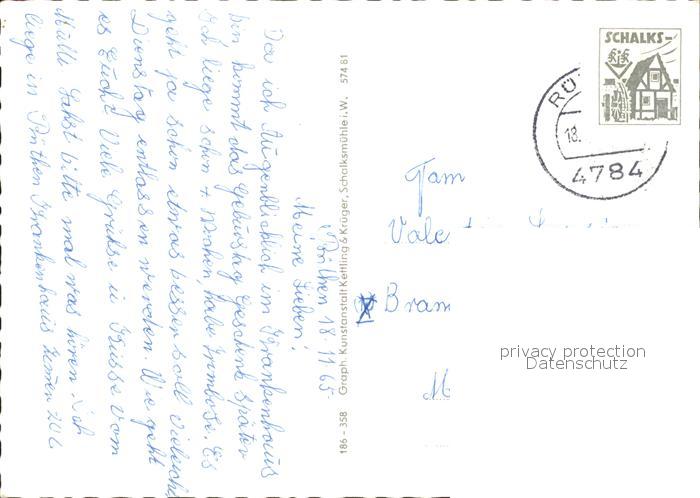 Rüthen 18.11.65.
Meine Lieben!
Da ich Augenblicklich im Krankenhaus
bin kommt das Geburtstag Geschenk später
Ich liege schon 4 Wochen, habe Trombose. Es
geht ja schon etwas besser soll vieleicht
Dienstag entlassen werden. Wie geht
es Euch? Viele Grüße u Küsse vom
laßt bitte mal was hören. Ich
liege in Rüthen Krankenhaus Zimmer 206
186 - 358 Graph. Kunstanstalt Kettling & Krüger, Schalksmühle i. W. 57481
SCHALKS-
KrK
RÜ
18.
4784
Fam
Vale
Bram
M
privacy protection
Datenschutz